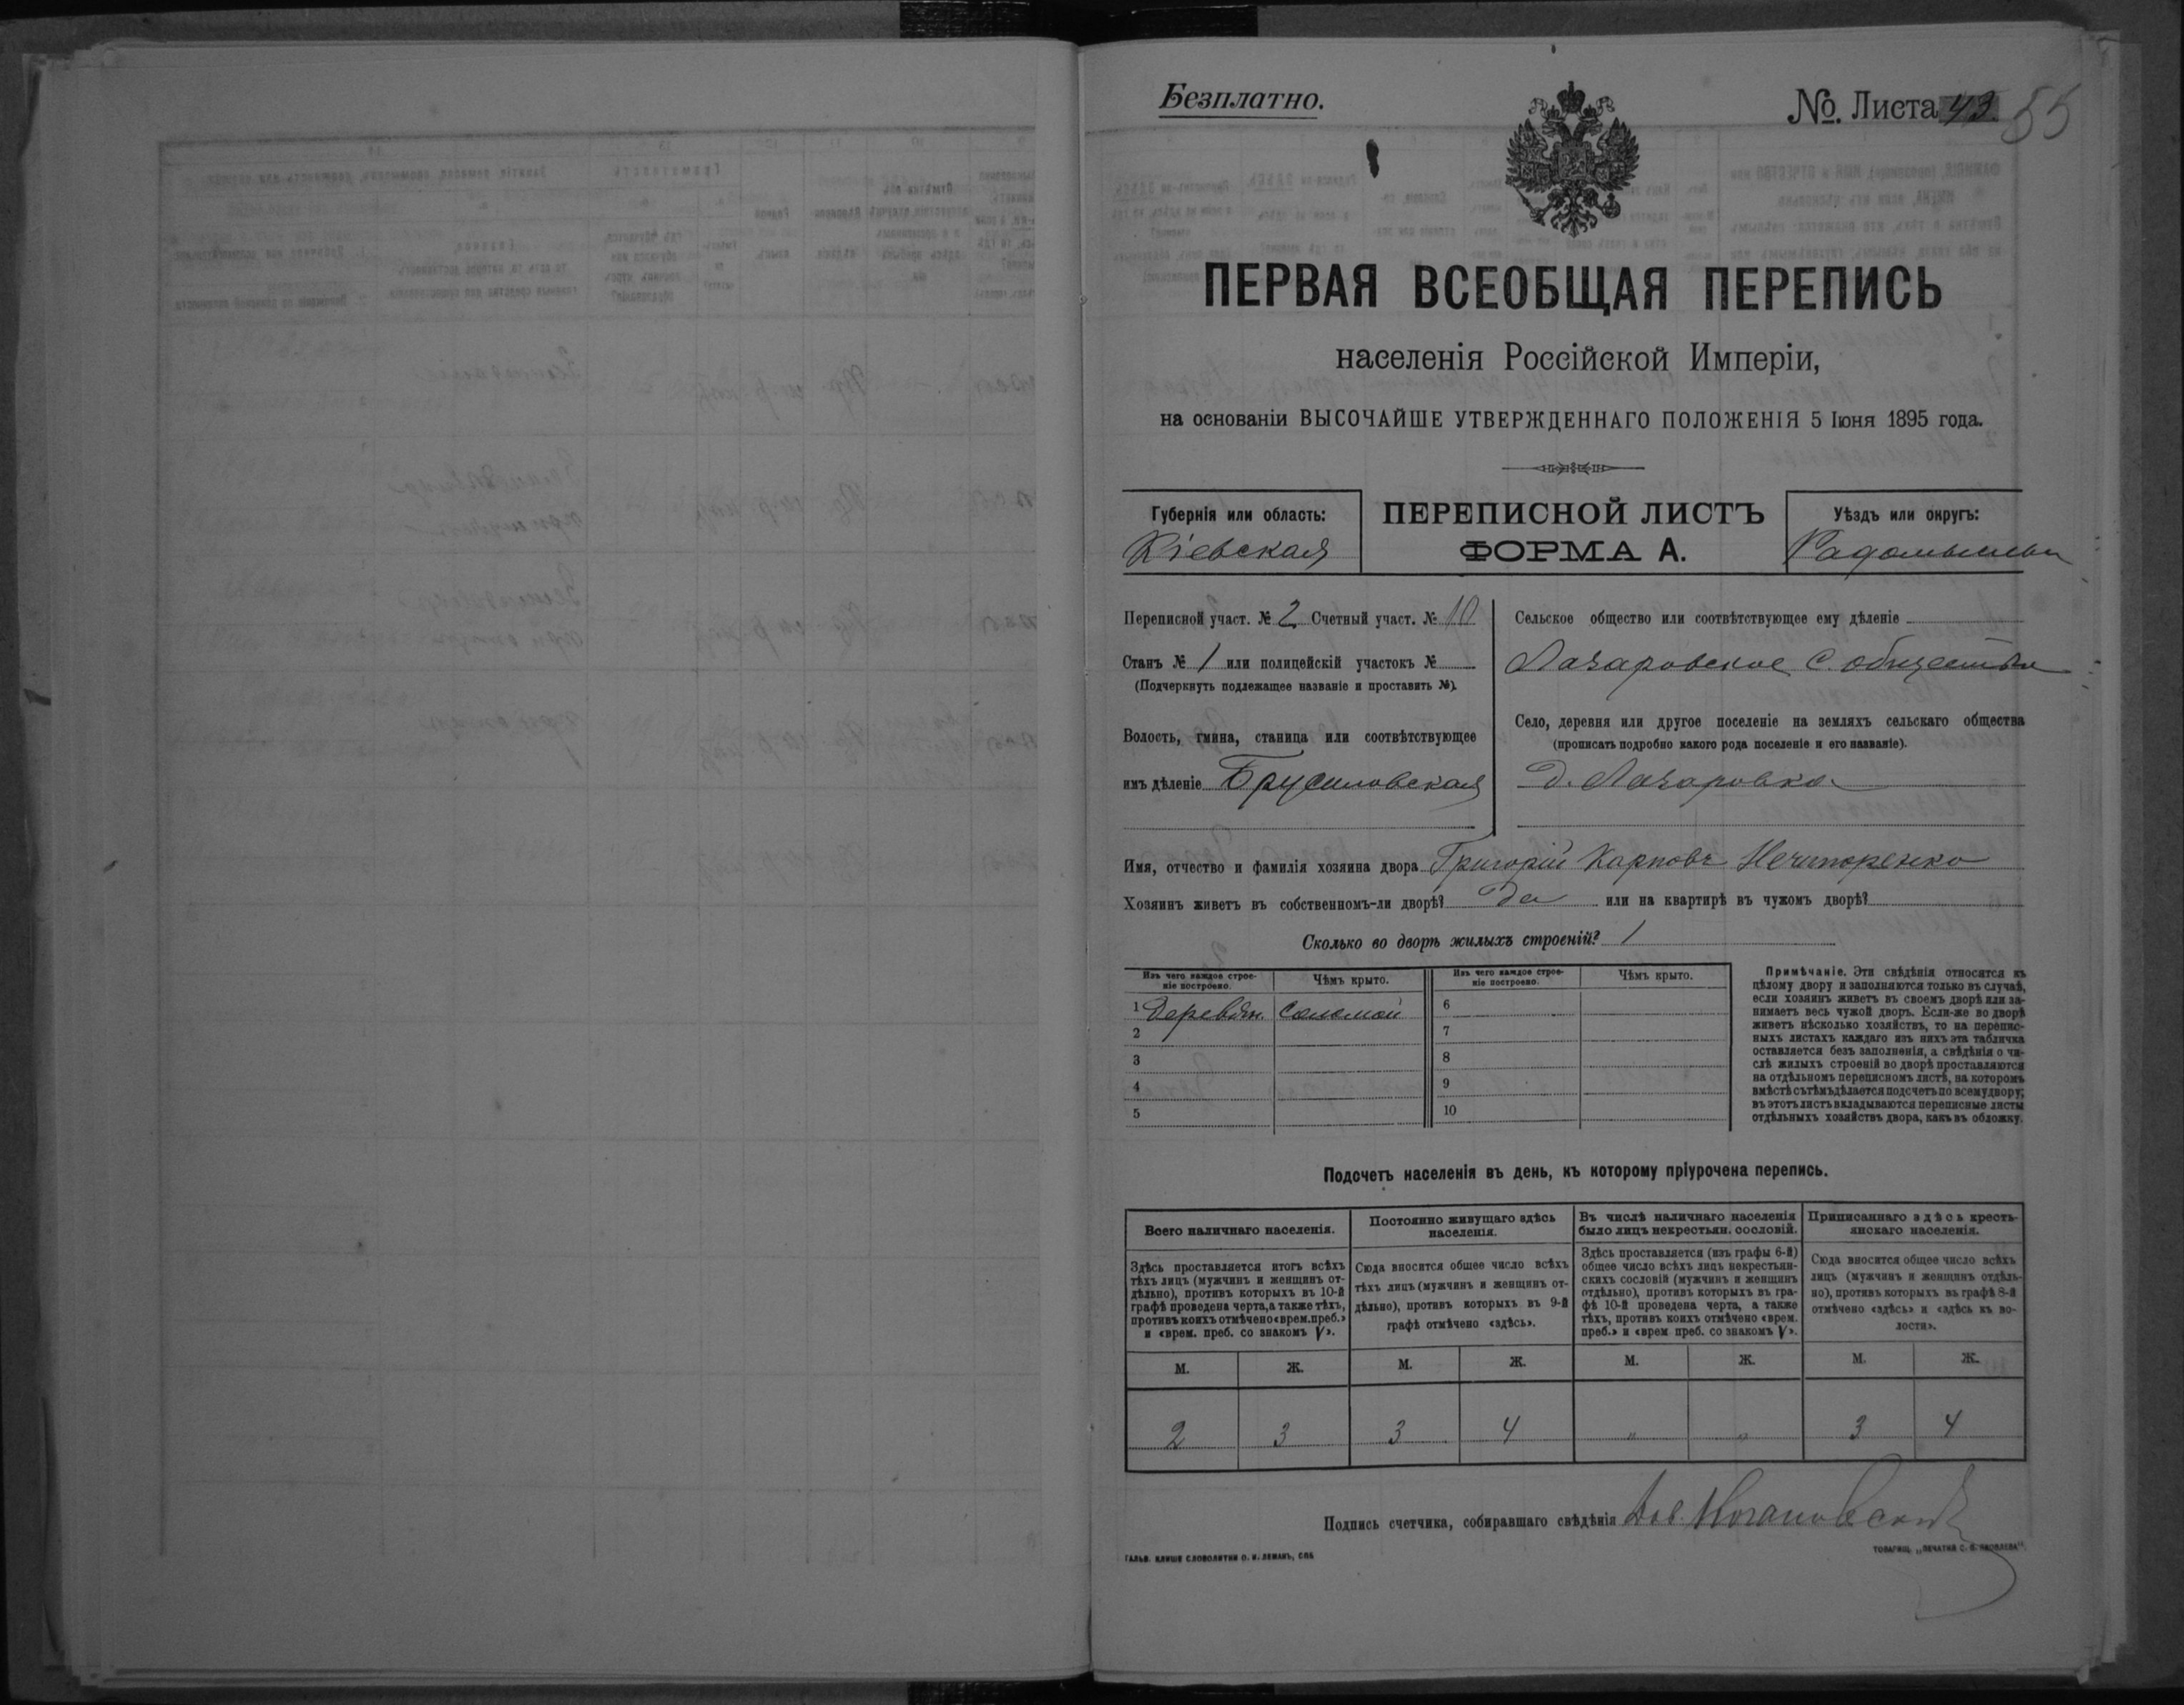 Безплатно.
№. Листа 43 55
ПЕРВАЯ ВСЕОБЩАЯ ПЕРЕПИСЬ
населенія Россійской Имперіи,
на основаніи ВЫСОЧАЙШЕ УТВЕРЖДЕННАГО ПОЛОЖЕНІЯ 5 Іюня 1895 года.
Губернія или область:
Кіевская
ПЕРЕПИСНОЙ ЛИСТЪ
ФОРМА А.
Уѣздъ или округъ:
Переписной участ. № 2 Счетный участ. № 10
Станъ № 1 или полицейскій участокъ №
(Подчеркнуть подлежащее названіе и проставить №).
Волость, гмина, станица или соотвѣтствующее
имъ дѣленіе Брусиловская
Сельское общество или соотвѣтствующее ему дѣленіе
Лазаровское с. общество
Село, деревня или другое поселеніе на земляхъ сельскаго общества
(прописать подробно какого рода поселеніе и его названіе).
д. Лазаровка
Имя, отчество и фамилія хозяина двора Григорій Карповъ Нечипоренко
Хозяинъ живетъ въ собственномъ-ли дворѣ? Да или на квартирѣ въ чужомъ дворѣ?
Сколько во дворѣ жилыхъ строеній? 1
Изъ чего каждое строе-
ніе построено.
Чѣмъ крыто.
Изъ чего каждое строе-
ніе построено.
Чѣмъ крыто.
1 Деревян. Соломой 6
2 7
3 8
4 9
5 10
Примѣчаніе. Эти свѣдѣнія относятся къ
цѣлому двору и заполняются только въ случаѣ,
если хозяинъ живетъ въ своемъ дворѣ или за-
нимаетъ весь чужой дворъ. Если-же во дворѣ
живетъ нѣсколько хозяйствъ, то на перепис-
ныхъ листахъ каждаго изъ нихъ эта табличка
оставляется безъ заполненія, а свѣдѣнія о чи-
слѣ жилыхъ строеній во дворѣ проставляются
на отдѣльномъ переписномъ листѣ, на которомъ
вмѣстѣ съ тѣмъ дѣлается подсчетъ по всему двору;
въ этотъ листъ вкладываются переписные листы
отдѣльныхъ хозяйствъ двора, какъ въ обложку.
Подсчетъ населенія въ день, къ которому пріурочена перепись.
Всего наличнаго населенія.
Здѣсь проставляется итогъ всѣхъ
тѣхъ лицъ (мужчинъ и женщинъ от-
дѣльно), противъ которыхъ въ 10-й
графѣ проведена черта, а также тѣхъ,
противъ коихъ отмѣчено «врем. преб.»
и «врем. преб. со знакомъ V».
Постоянно живущаго здѣсь
населенія.
Сюда вносится общее число всѣхъ
тѣхъ лицъ (мужчинъ и женщинъ от-
дѣльно), противъ которыхъ въ 9-й
графѣ отмѣчено «здѣсь».
Въ числѣ наличнаго населенія
было лицъ некрестьян. сословій.
Здѣсь проставляется (изъ графы 6-й)
общее число всѣхъ лицъ некрестьян-
скихъ сословій (мужчинъ и женщинъ
отдѣльно), противъ которыхъ въ гра-
фѣ 10-й проведена черта, а также
тѣхъ, противъ коихъ отмѣчено «врем.
преб.» и «врем преб. со знакомъ V».
Приписаннаго здѣсь кресть-
янскаго населенія.
Сюда вносится общее число всѣхъ
лицъ (мужчинъ и женщинъ отдѣль-
но), противъ которыхъ въ графѣ 8-й
отмѣчено «здѣсь» и «здѣсь къ во-
лости».
М. Ж. М. Ж. М. Ж. М. Ж.
2 3 3 4 " " 3 4
Подпись счетчика, собиравшаго свѣдѣнія
ГАЛЬВ. КЛИШЕ СЛОВОЛИТНИ О. И. ЛЕМАНЪ, СПБ.
ТОВАРИЩ. „ПЕЧАТНЯ С. П. ЯКОВЛЕВА".